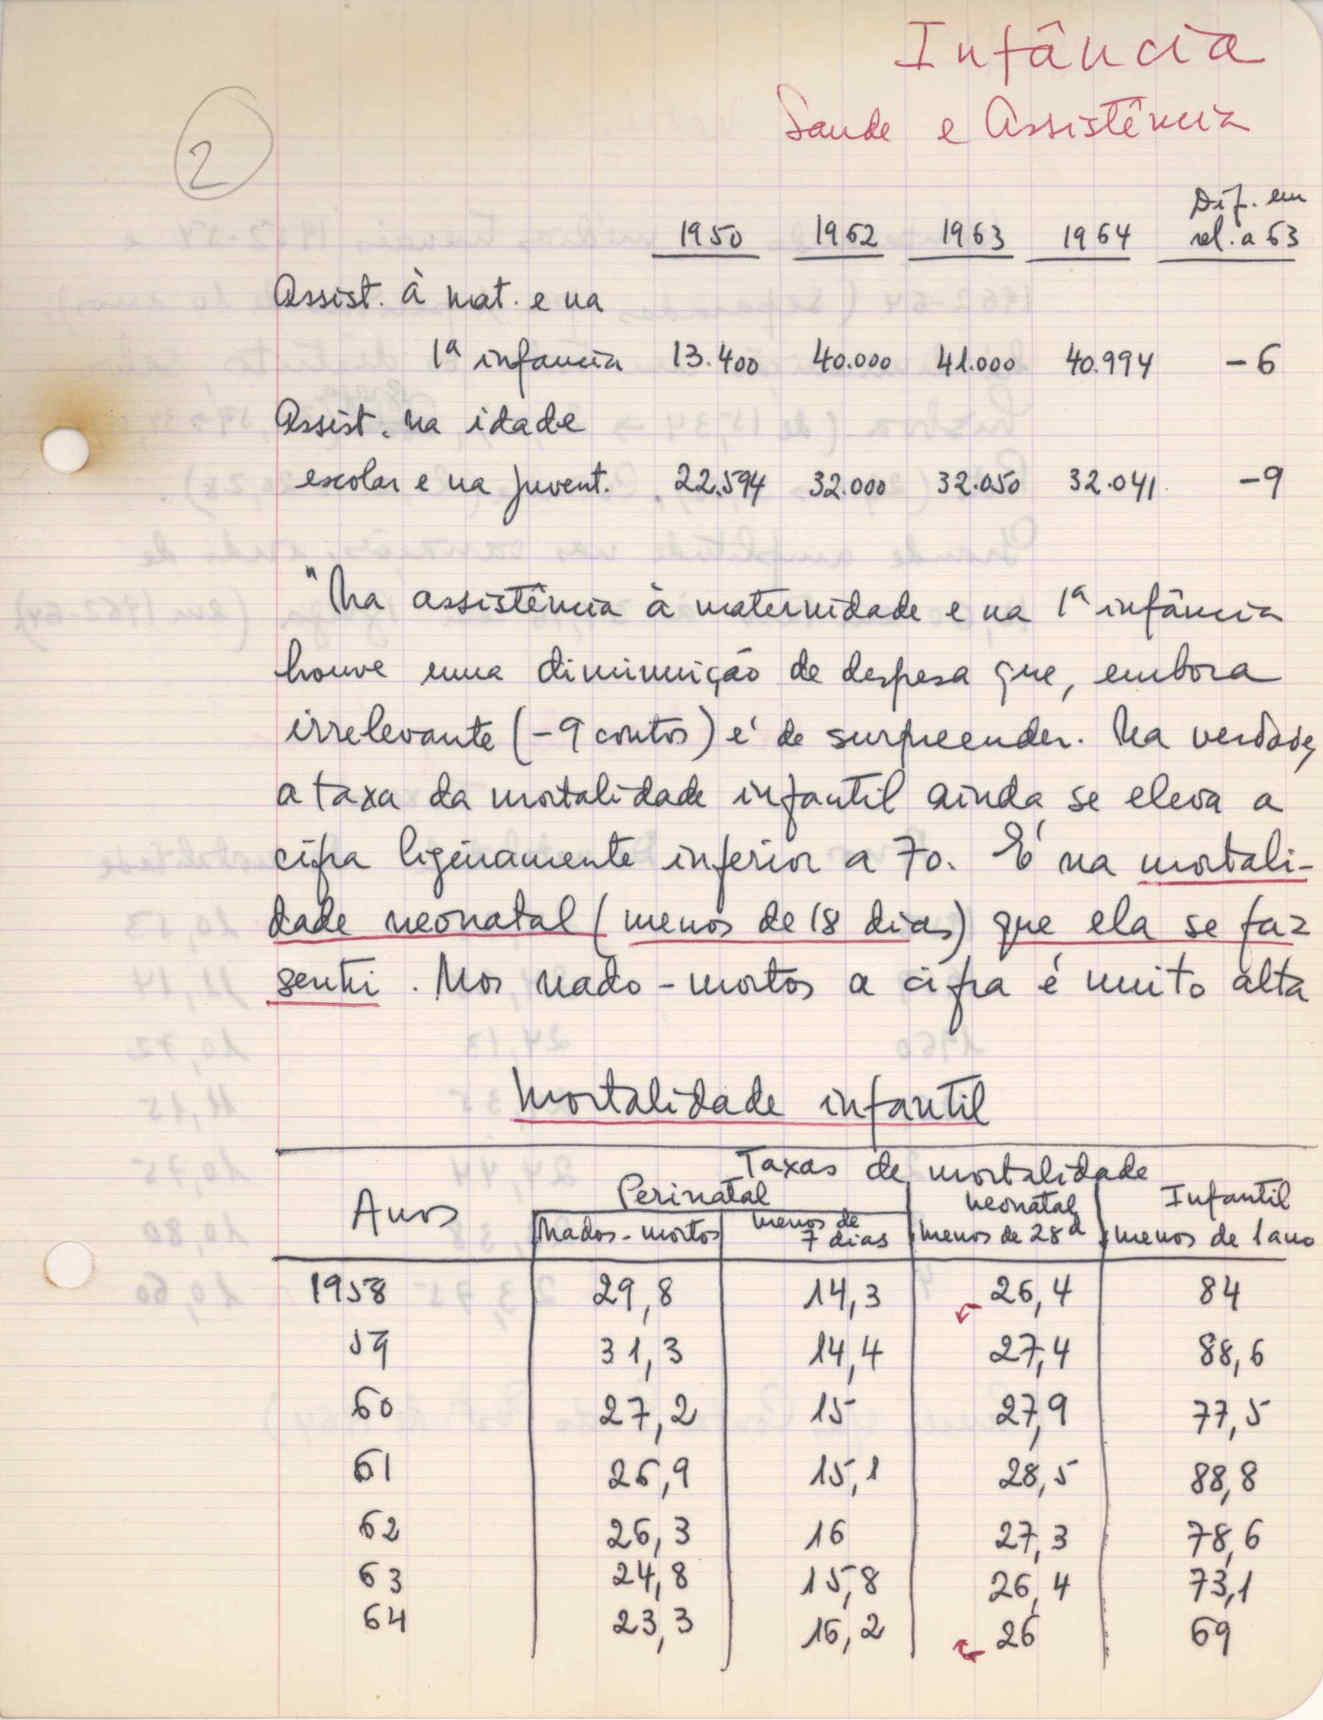 Infância
Saude e Assistência
2
1950 1962 1963 1964 Dif. em
rel. a 63
Assist. à mat. e na
1ª infancia 13.400 40.000 41.000 40.994 -6
Assist. na idade
escolar e na juvent. 22.594 32.000 32.050 32.041 -9
"Na assistência à maternidade e na 1ª infância
houve uma diminuição de despesa que, embora
irrelevante (-9 contos) é de surpreender. Na verdade,
a taxa da mortalidade infantil ainda se eleva a
cifra ligeiramente inferior a 70. É na mortali-
dade neonatal (menos de 18 dias) que ela se faz
sentir. Nos nado-mortos a cifra é muito alta
Mortalidade infantil
Taxas de mortalidade
Anos Perinatal Neonatal Infantil
Nados-mortos menos de 7 dias menos de 28d menos de 1 ano
1958 29,8 14,3 26,4 84
59 31,3 14,4 27,4 88,6
60 27,2 15 27,9 77,5
61 26,9 15,1 28,5 88,8
62 26,3 16 27,3 78,6
63 24,8 15,8 26,4 73,1
64 23,3 16,2 26 69